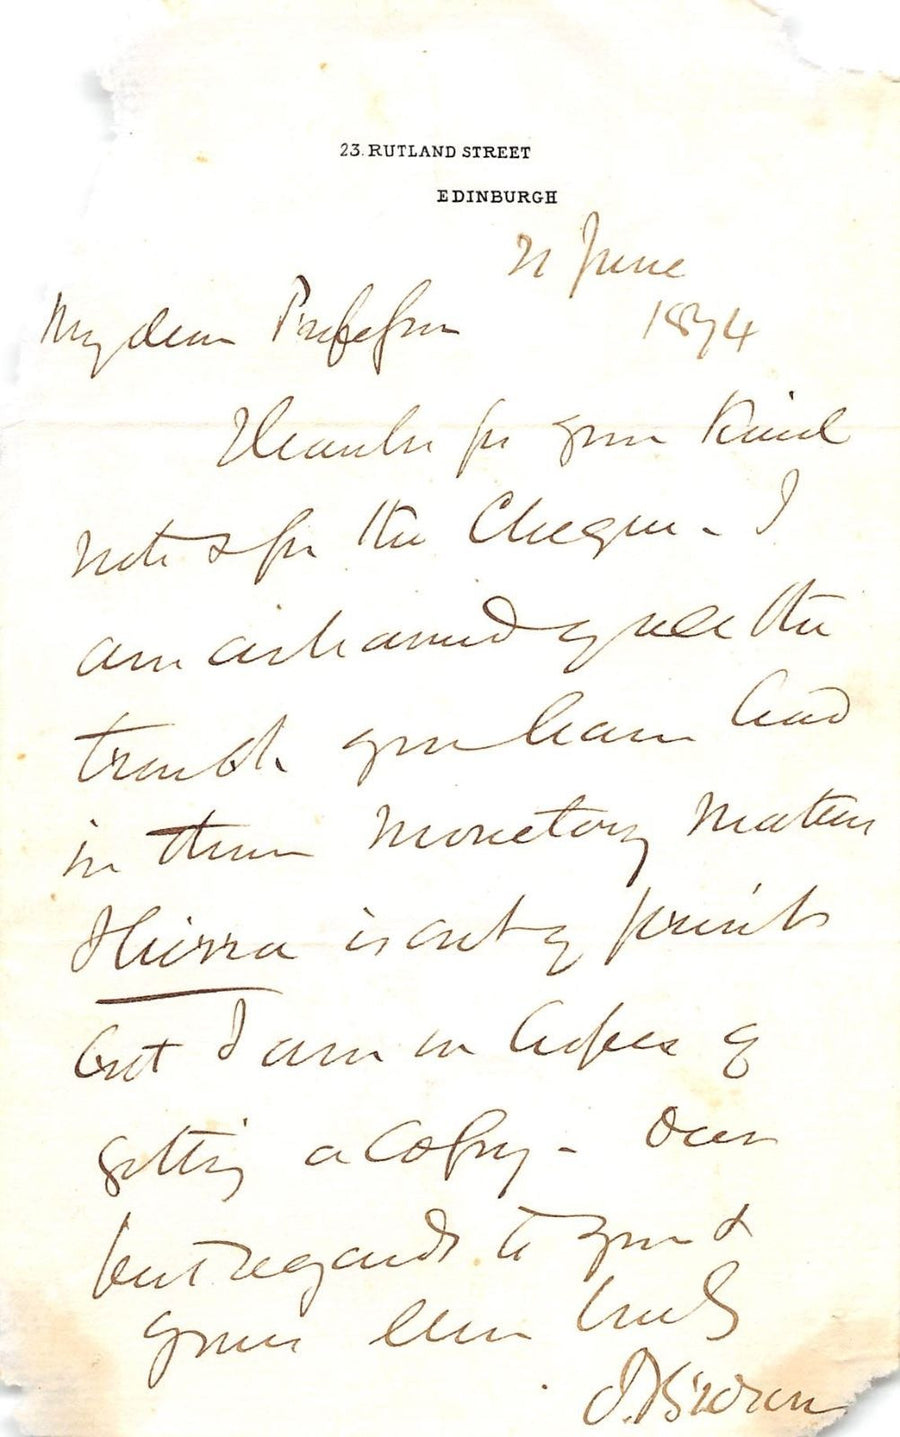 23. RUTLAND STREET
EDINBURGH
21 June
1874
My dear Professor
Thanks for your kind
note & for the Cheque - I
am ashamed of all the
trouble you have had
in these monetary matters
is out of print
but I am in hopes of
getting a copy - Our
best regards to you &
yours Ever truly
J. Brown